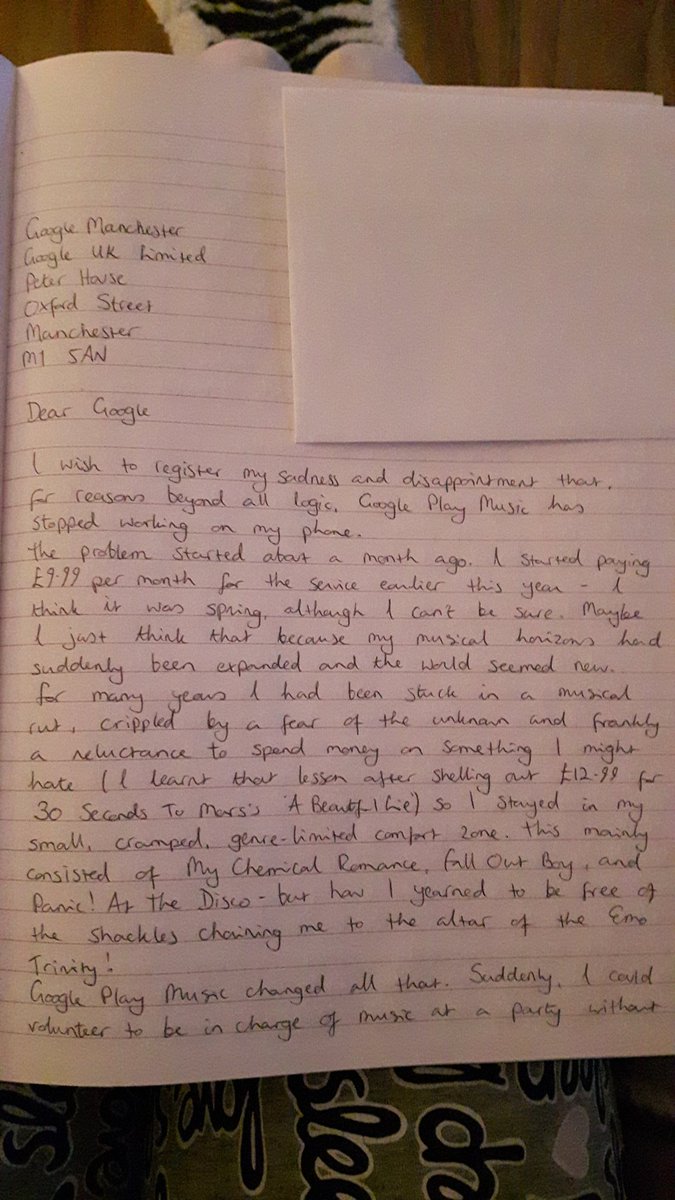 Google Manchester
Google UK Limited
Peter House
Oxford Street
Manchester
M1 5AN
Dear Google
I wish to register my sadness and disappointment that,
for reasons beyond all logic, Google Play Music has
stopped working on my phone.
The problem started about a month ago. I started paying
£9.99 per month for the service earlier this year - I
think it was spring, although I can't be sure. Maybe
I just think that because my musical horizons had
suddenly been expanded and the world seemed new.
For many years I had been stuck in a musical
rut, crippled by a fear of the unknown and frankly
a reluctance to spend money on something I might
hate (I learnt that lesson after shelling out £12.99 for
30 Seconds To Mars's 'A Beautiful Lie') so I stayed in my
small, cramped, genre-limited comfort zone. This mainly
consisted of My Chemical Romance, Fall Out Boy, and
Panic! At The Disco - but how I yearned to be free of
the shackles chaining me to the altar of the Emo
Trinity!
Google Play Music changed all that. Suddenly, I could
volunteer to be in charge of music at a party without